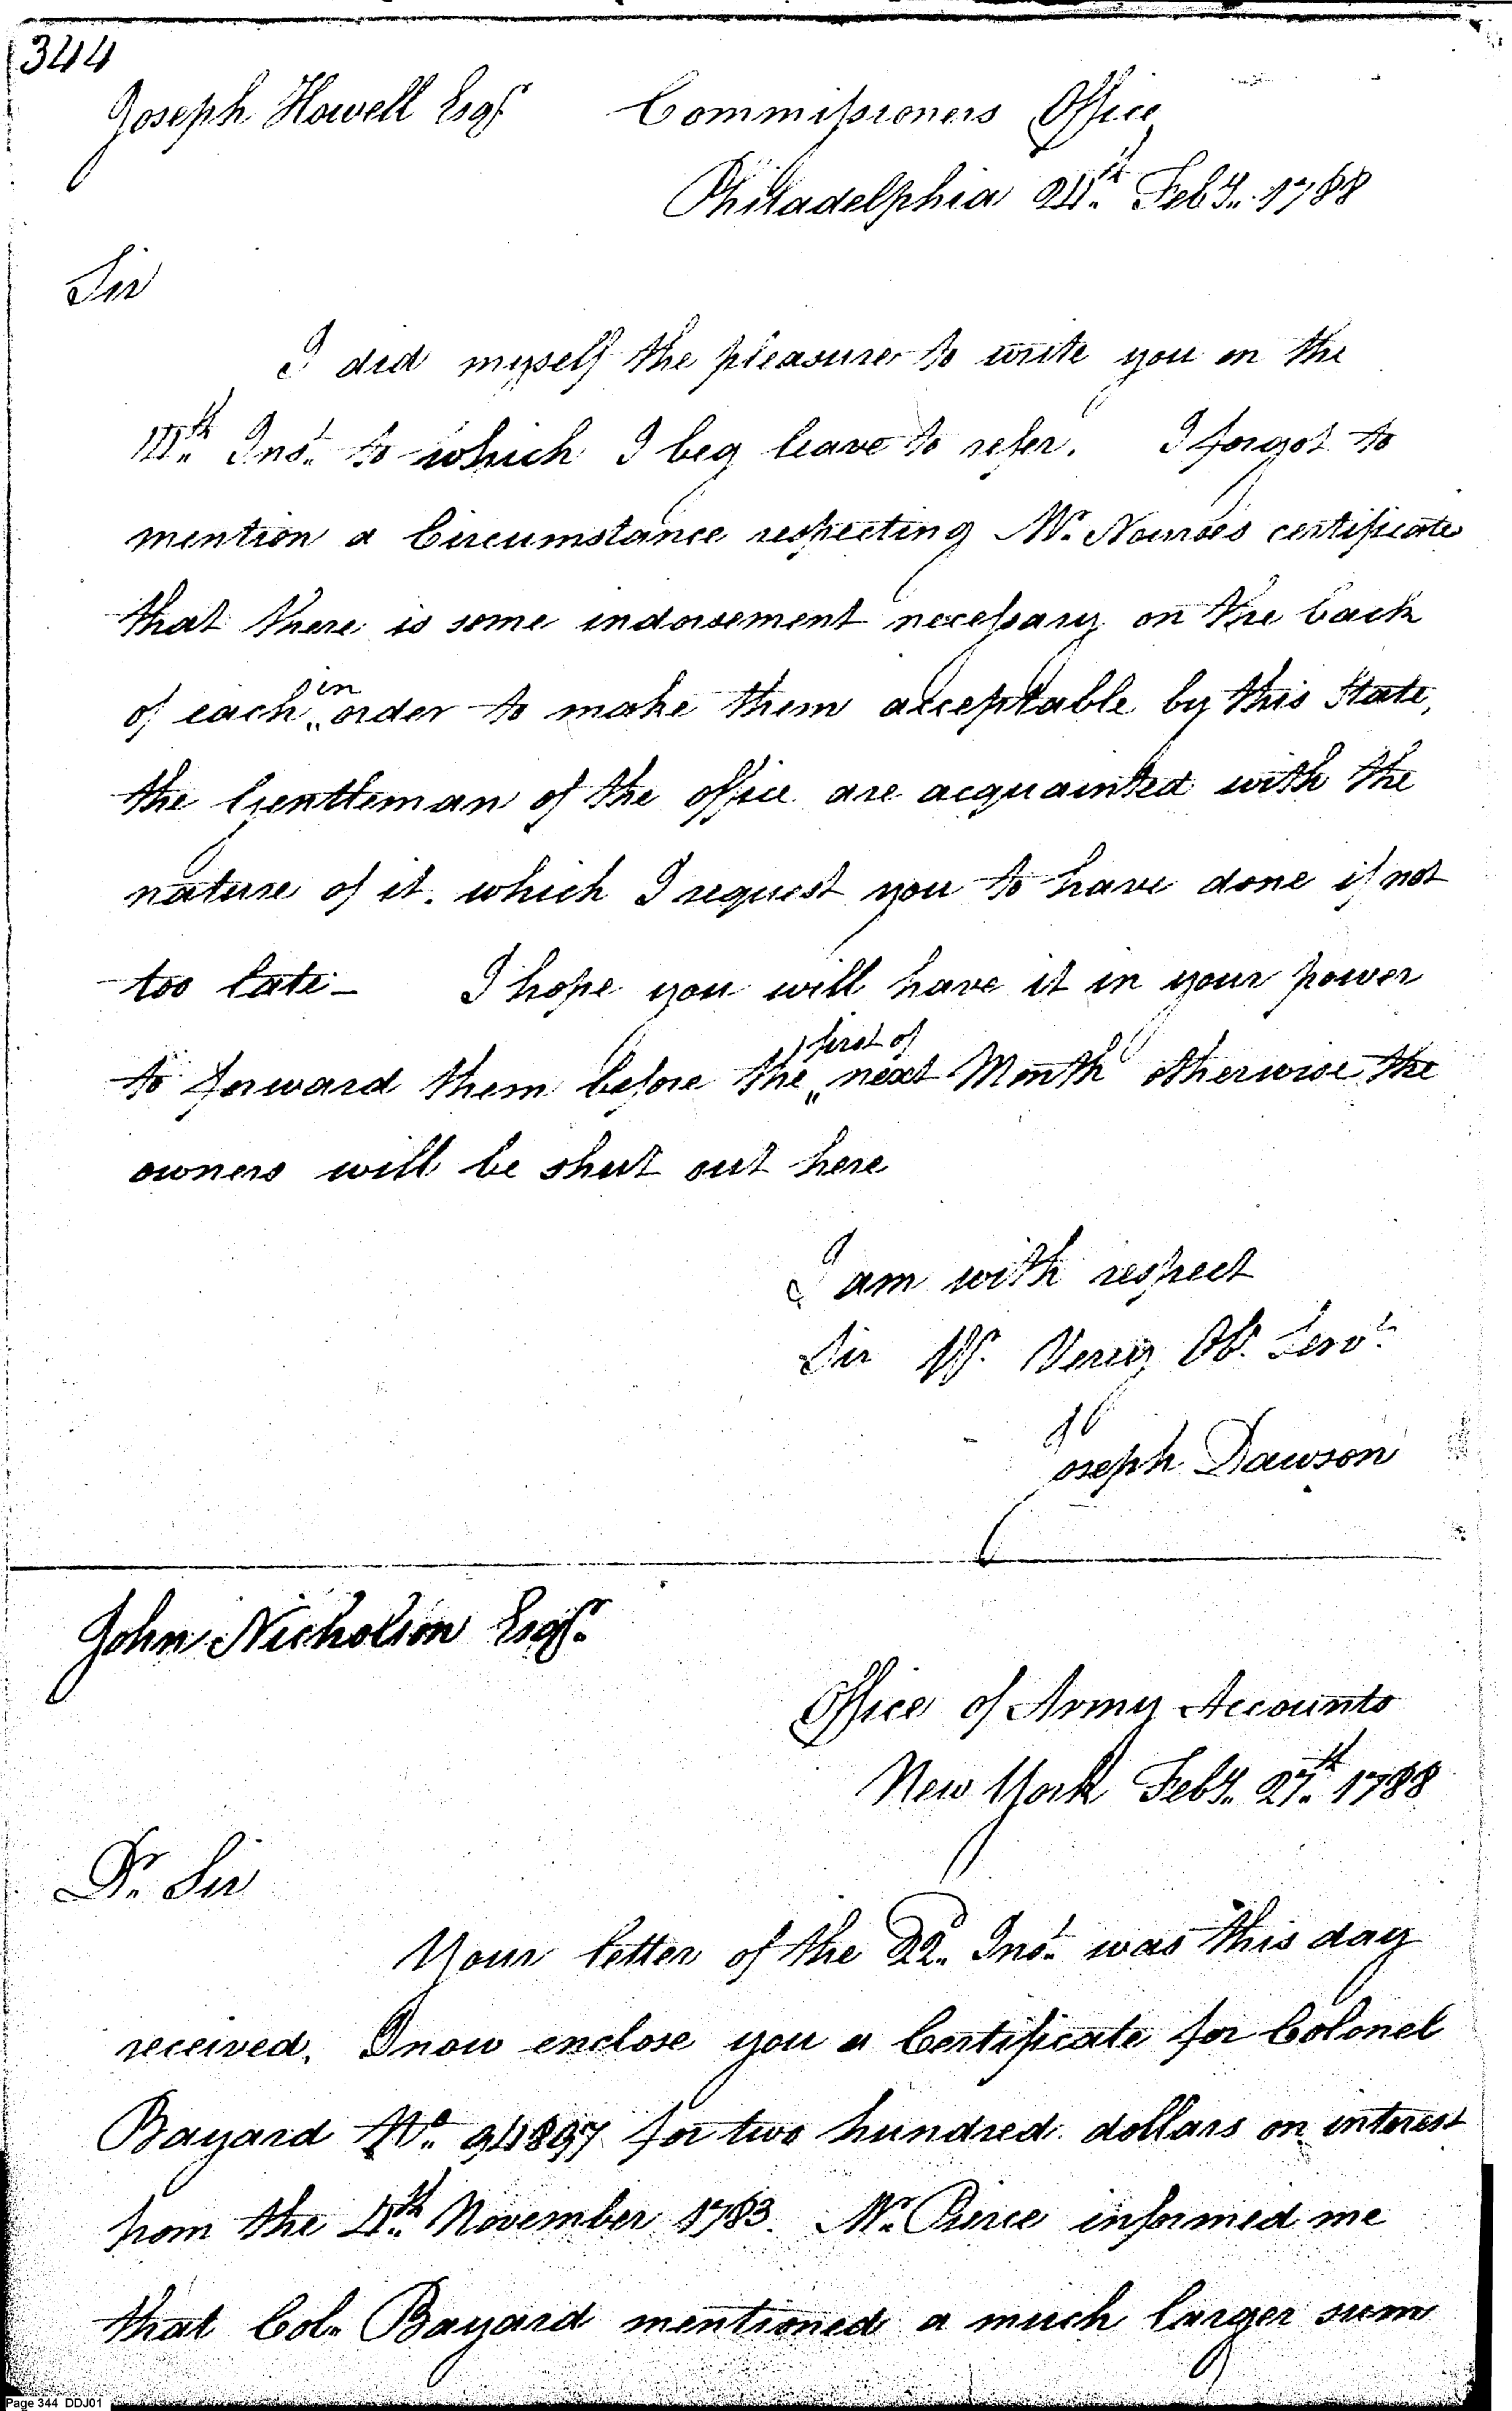 344
Joseph Howell Esqr. Commissioners Office
Philadelphia 24th. Feby. 1788
Sir
I did myself the pleasure to write you on the
14th. Inst. to which I beg leave to refer. I forgot to
mention a Circumstance respecting Mr. Nourses certificates
that there is some indorsement necessary on the back
of each in order to make them acceptable by this State,
the Gentleman of the office are acquainted with the
nature of it. which I request you to have done if not
too late – I hope you will have it in your power
to forward them before the first of next Month otherwise the
owners will be shut out here
I am with respect
Sir Yr. Very Ob. Servt.
Joseph Dawson
John Nicholson Esqr.
Office of Army Accounts
New York Feby. 27th. 1788
Dr. Sir
Your letter of the 22d. Inst. was this day
received. I now enclose you a Certificate for Colonel
Bayard No. 94897 for two hundred dollars on interest
from the 4th. November 1783. Mr. Pierce informed me
that Col. Bayard mentioned a much larger sum
Page 344 DDJ01